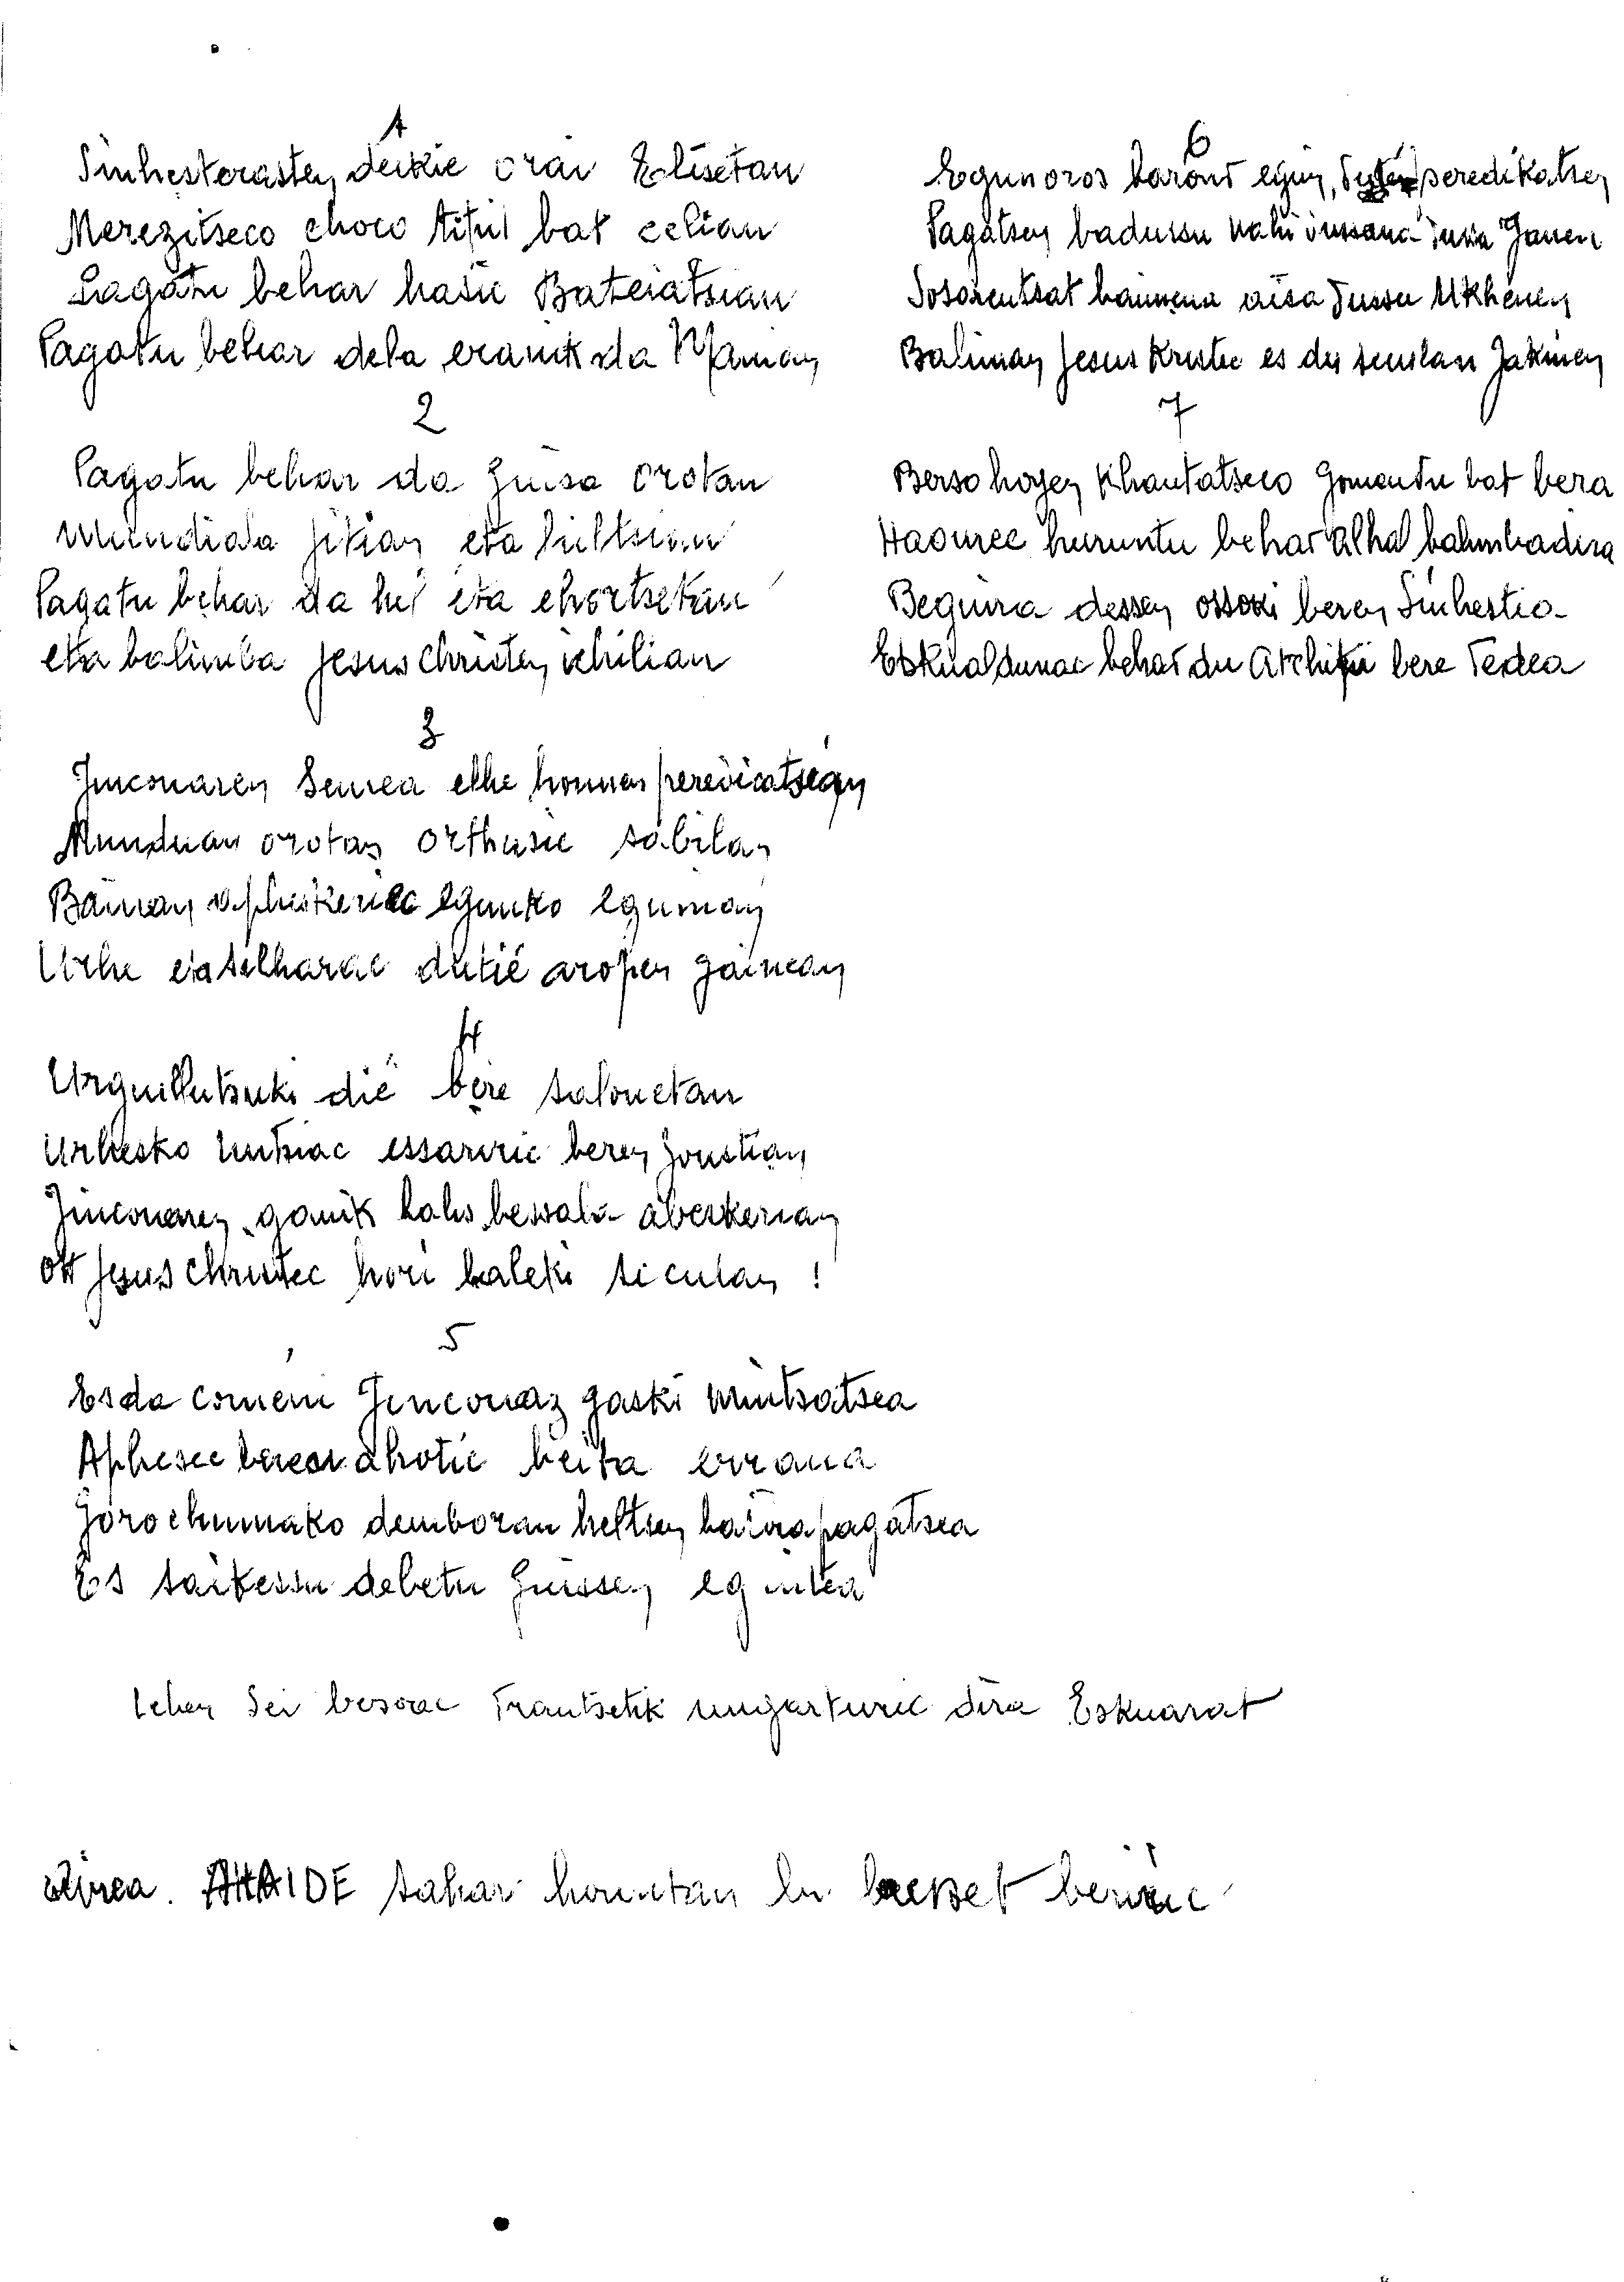 1
Sinhesterasten deikie orai Elisetan
Merezitseco choco tipil bat celian
Pagatu behar hasie Bateiatsian
Pagatu behar dela eranik da Mamian
2
Pagatu behar da guisa orotan
mundiala jitian eta hiltsian
Pagatu behar da hil eta ehortsetan
eta balimba Jesus Christen ichilian
3
Jincouaren Semea elhe hounen peredicatsean
Munduan orotan orthusic sabilan
Bainan apheskeriec egunko egunian
Urhe eta silharac dutie aropen gainean
4
Urguillutsuki die bere salouetan
Urhesko hutsiac essaririe beren
Jincouaren ganik hala bessala aberkerian
oh Jesus Christec hori baleki sicutan !
5
Esda comeni Jincouaz gaski mintsatsea
Aphesec beren ahotic beita errana
Jorochumako demboran heltsen baira pagatsea
Es saikessu debetu guissen eguitea
6
Egun oros barour egin, peredikatsen
Pagatsen badussu nahi dussana Jaten
Sosarentsat baimena aisa dussu Ukhenen
Baliman Jesus Kristec es du Jakinen
7
Berso hoyen Khantatseco gomendu bat bera
Haourec huruntu behar
Beguira dessen ossoki beren Sinhestia
Eskualdunac behar du Atchiki bere Fedea
Lehen Sei bersoac Frantsetik dira Eskuarat
airea. AHAIDE sahar hountan berriric